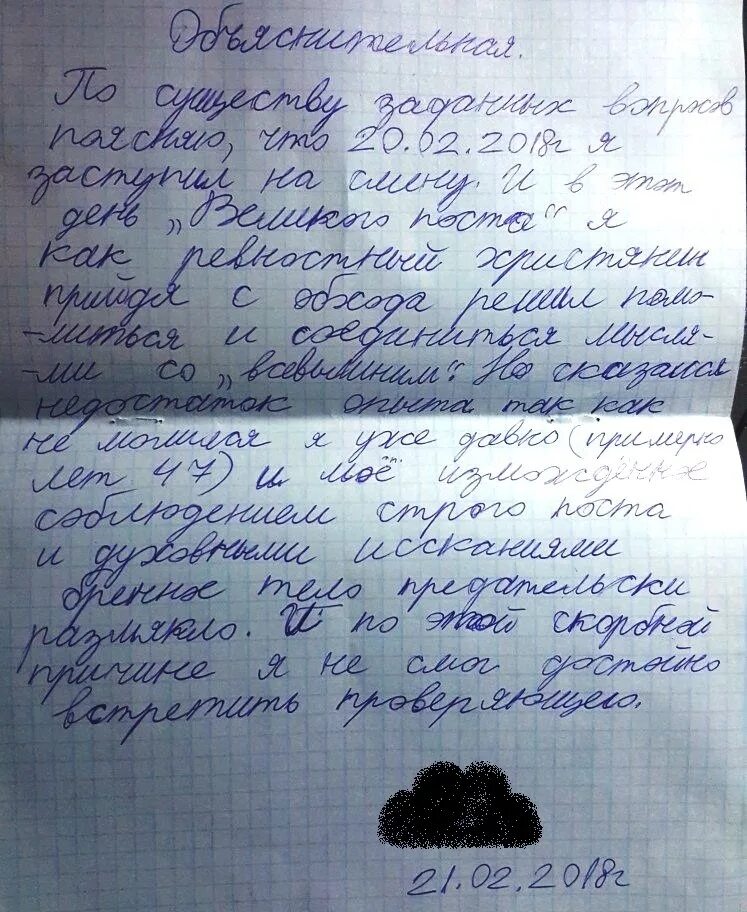 Объяснительная.
По существу заданных вопросов
поясняю, что 20.02.2018г я
заступил на смену. И в этот
день „Великого поста“ я
как ревностный христянин
прийдя с обхода решил помо-
-литься и соединиться мысля-
-ми со „всевышним“. Но сказался
недостаток опыта так как
не молился я уже давно (примерно
лет 47) и моё измождённое
соблюдением строго поста
и духовными иссканиями
бренное тело предательски
размякло. И по этой скорбной
причине я не смог достойно
встретить проверяющего.
21.02.2018г